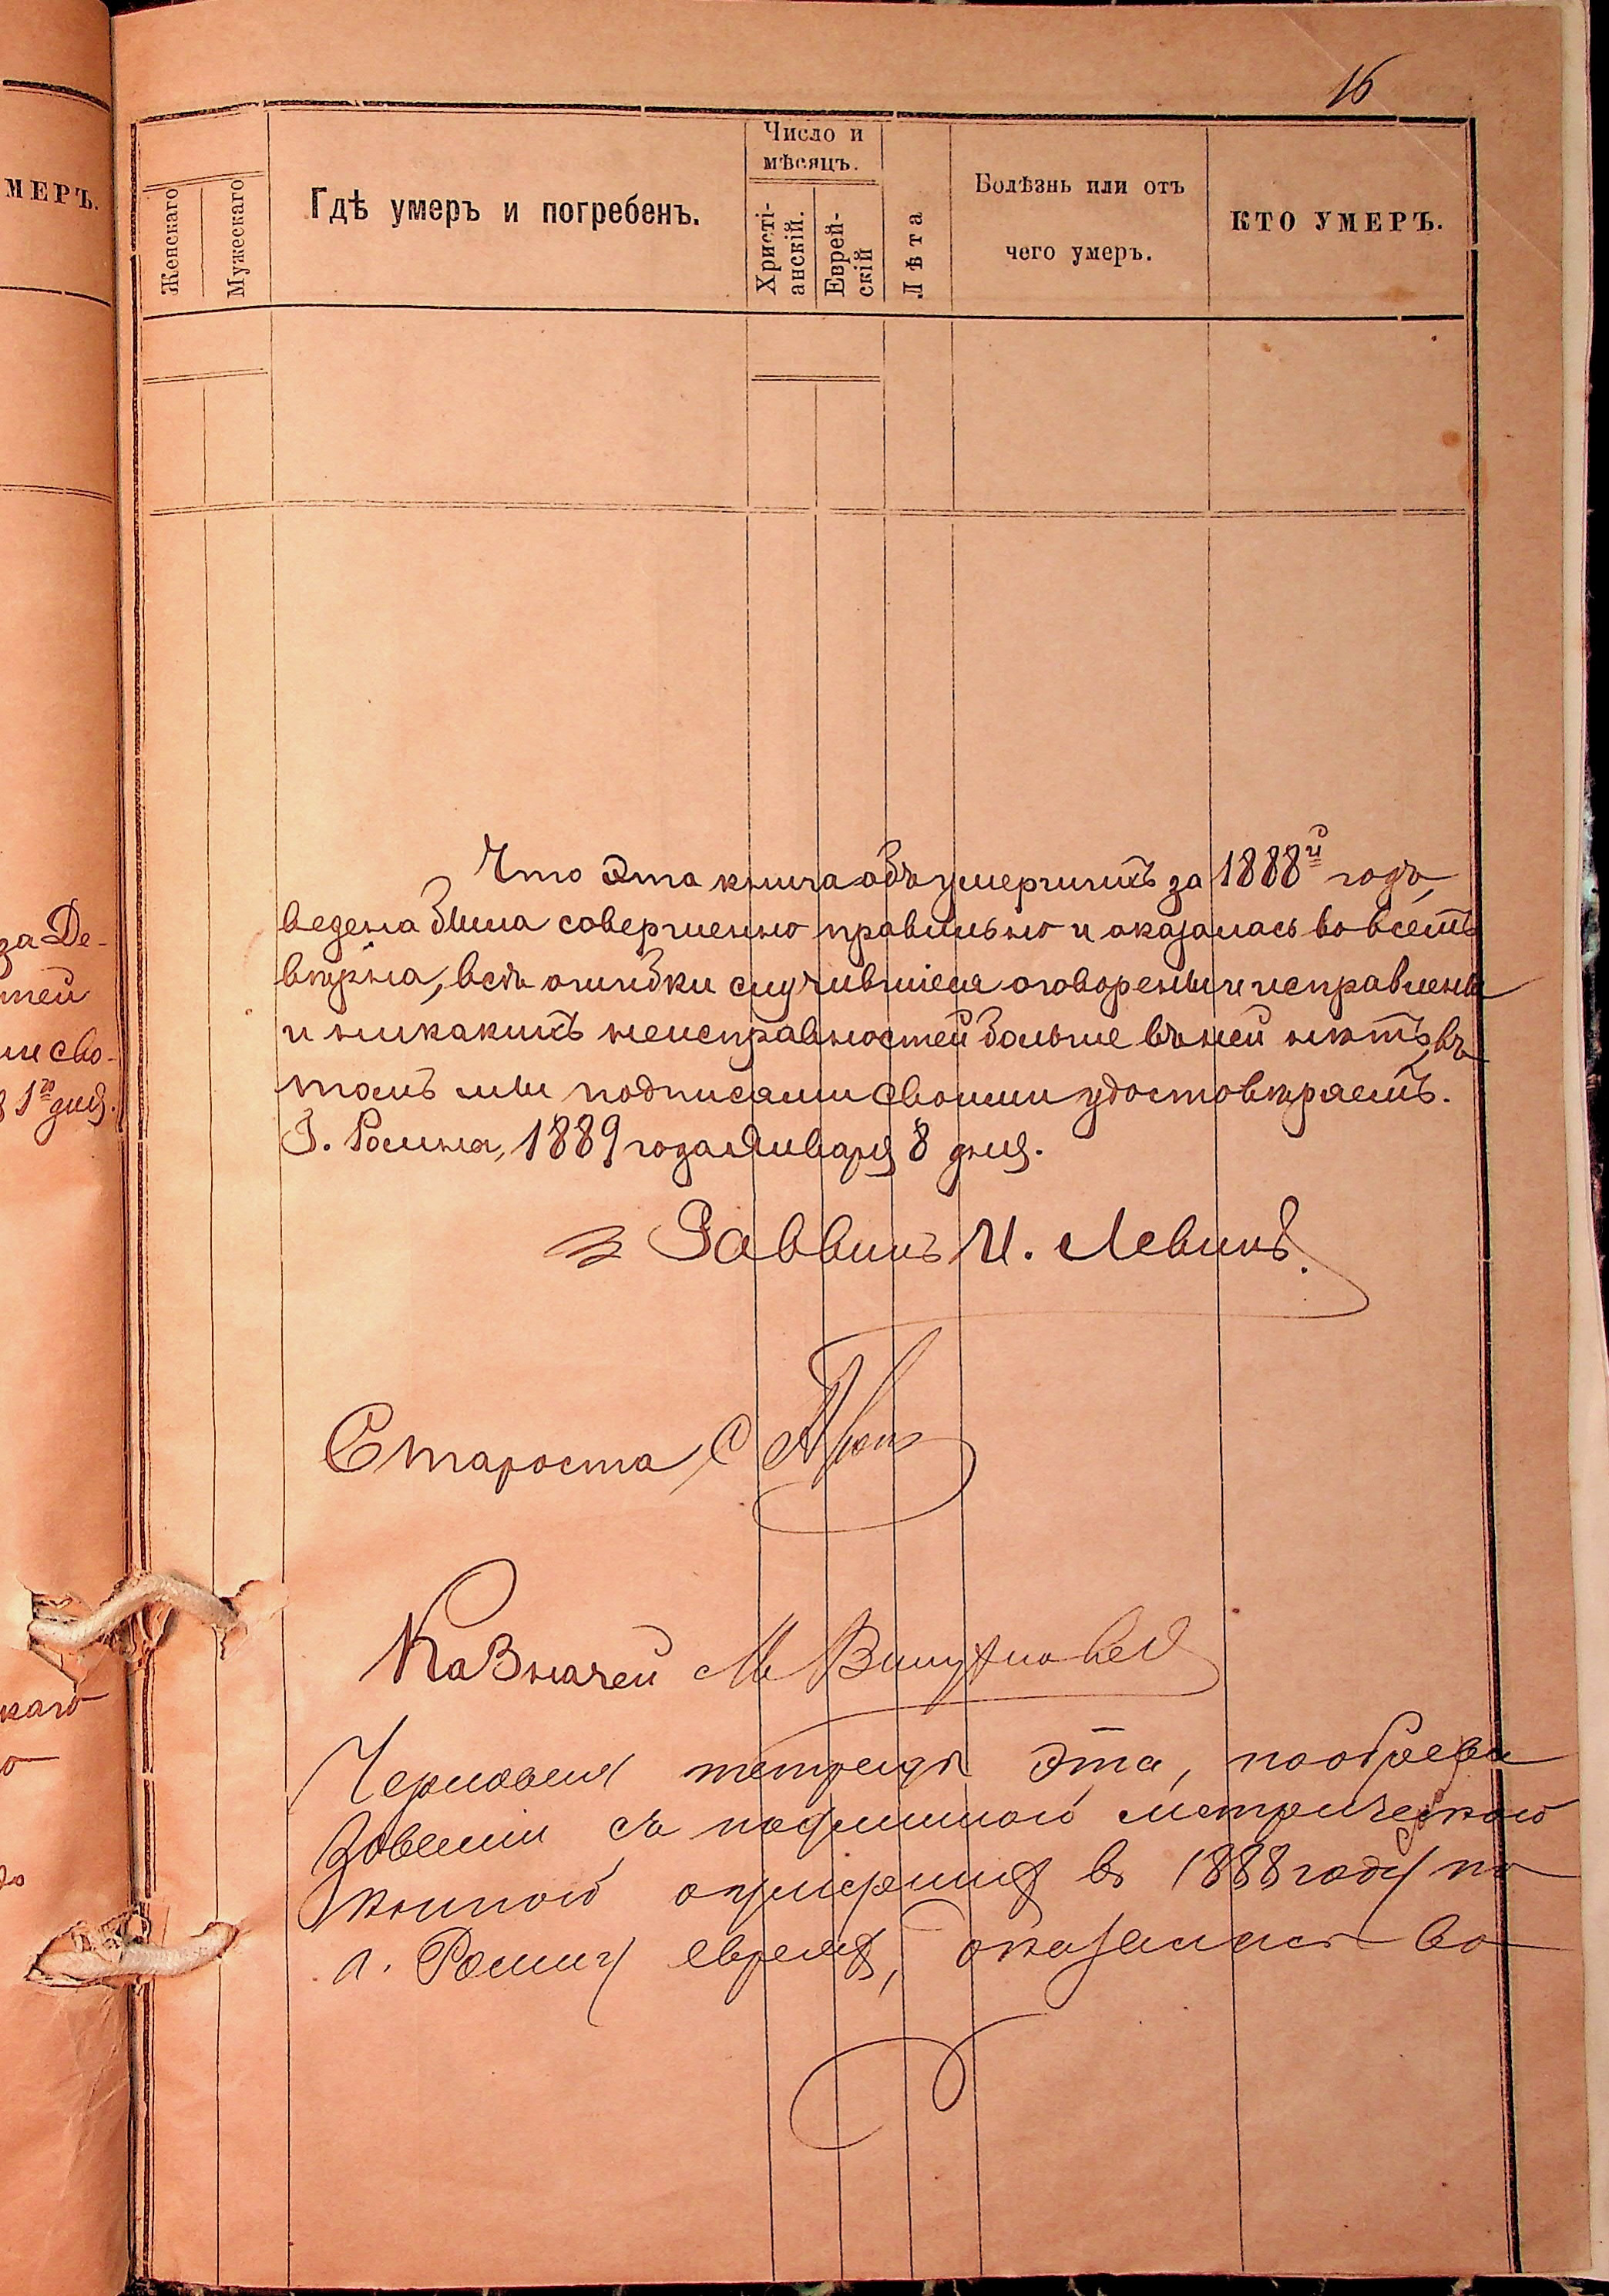 16
МЕРЪ.
Женскаго
Мужескаго
Гдѣ умеръ и погребенъ.
Число и
мѣсяцъ.
Христі-
анскій.
Еврей-
скій
Лѣта
Болѣзнь или отъ
чего умеръ.
КТО УМЕРЪ.
Что Эта книга объ умершихъ за 1888й годъ,
ведена была совершенно правильно и оказалась во всемъ
вѣрна, всѣ ошибки случившіеся оговорены и исправлены
и никакихъ неисправностей больше въ ней нѣтъ, въ
томъ мы подписями своими удостовѣряемъ.
Г. Ромна, 1889 года Января 8 дня.
Раввинъ И. Левинъ.
Староста С
Казначей М
Черновая тетрадь эта, по обреви
зованіи съ подлинной метрической
книгой о умершихъ въ 1888 году по
г. Ромну евреяхъ, оказалась во
за Де-
тей
ми сво-
1го дня.
каго